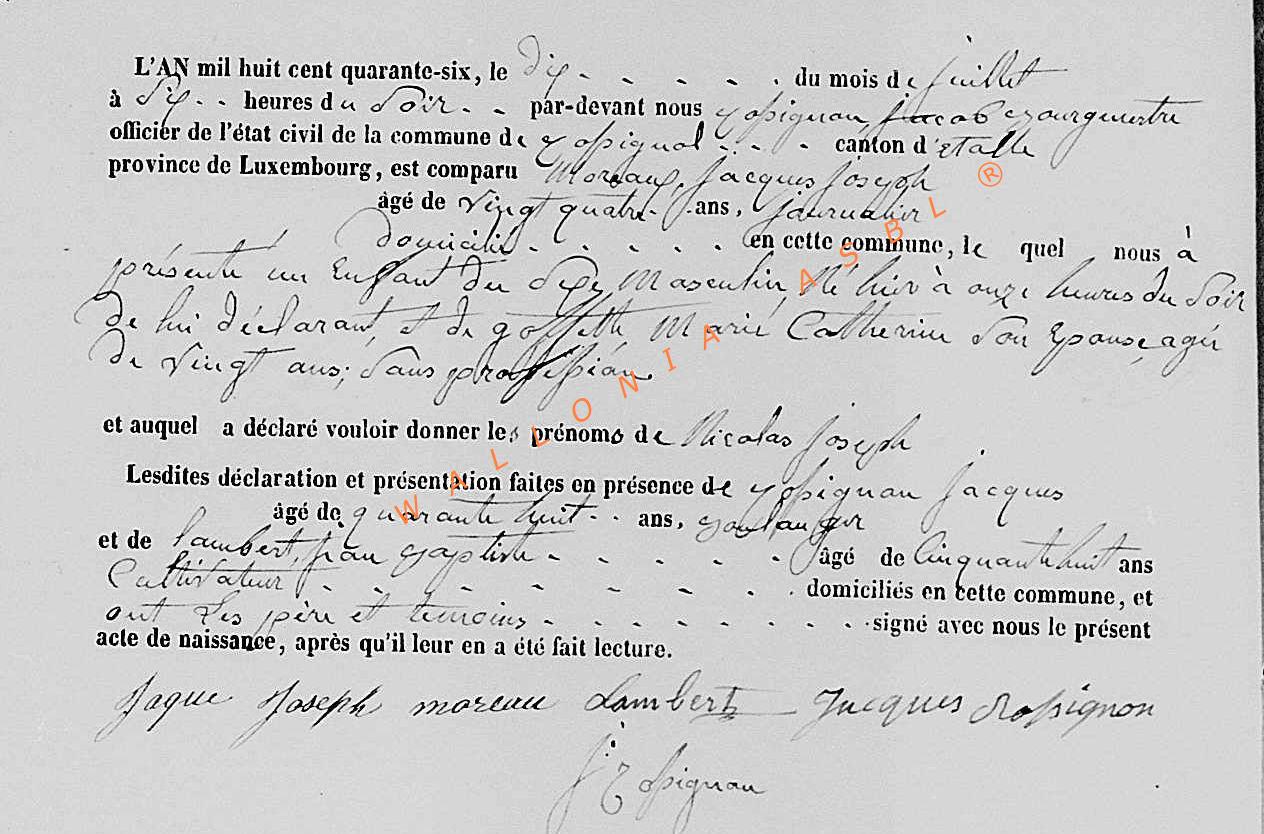 L'AN mil huit cent quarante-six, le dix - - - - - du mois de juillet
à Six - - heures du Soir - - par-devant nous Rossignon, Jacob Bourguemestre
officier de l'état civil de la commune de Rossignol - - - canton d'Etalle
province de Luxembourg, est comparu Moreaux, Jacques Joseph
âgé de Vingt quatre - ans, journalier
domicilié - - - - - en cette commune, le quel nous à
présenté un Enfant du Sexe Masculin, Né hier à onze heures du Soir
de lui déclarant, et de Goffette, Marie Catherine Son Epouse, agée
de Vingt ans, Sans profession.
et auquel a déclaré vouloir donner les prénoms de Nicolas Joseph
Lesdites déclaration et présentation faites en présence de Rossignon Jacques
âgé de quarante huit - - ans, Boulanger
et de Lambert, jean Baptiste - - - - - âgé de Cinquante huit ans
Cultivateur - - - - - - - - domiciliés en cette commune, et
ont Les père et temoins - - - - - - - - signé avec nous le présent
acte de naissance, après qu'il leur en a été fait lecture.
Jaque Joseph moreau Lambert Jacques Rossignon
J Rossignon
WALLONIA ASBL ®